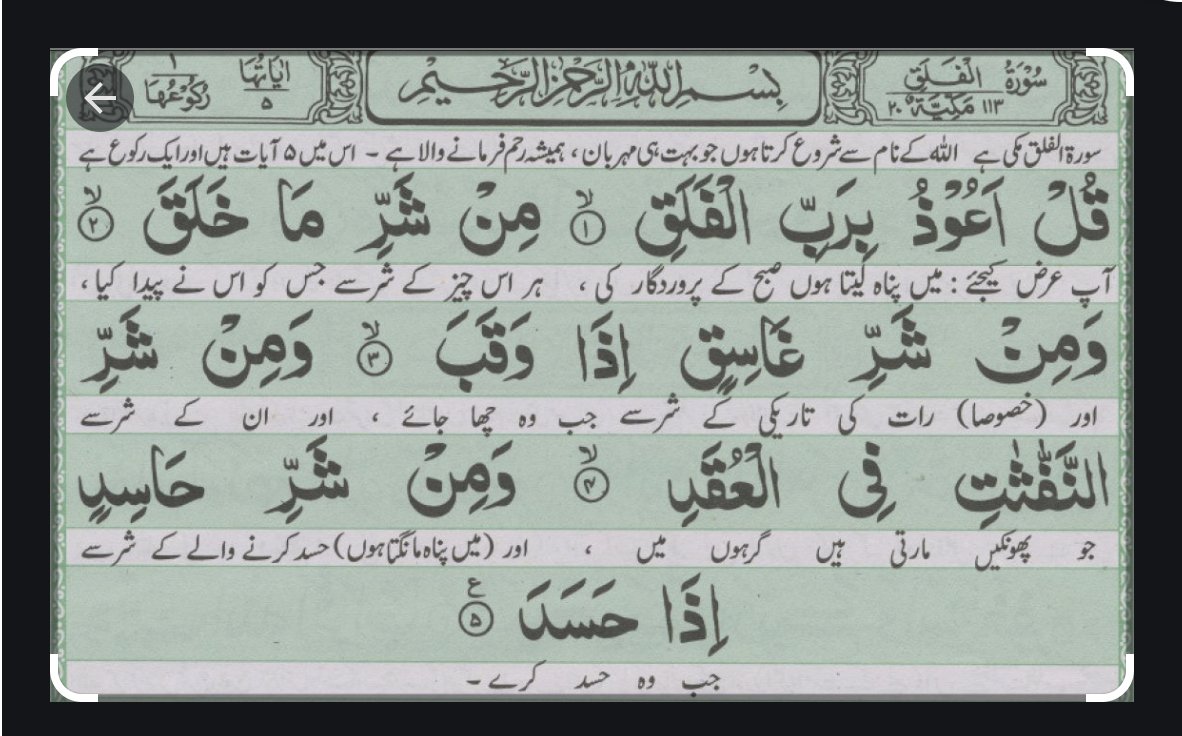 سُوْرَةُ الْفَلَقِ ١١٣ مَكِّيَّةٌ ٢٠
بِسْمِ اللّٰهِ الرَّحْمٰنِ الرَّحِيْمِ
اٰيَاتُهَا ٥ رُكُوْعُهَا ١
سورۃ الفلق مکی ہے اللہ کے نام سے شروع کرتا ہوں جو بہت ہی مہربان ، ہمیشہ رحم فرمانے والا ہے ۔ اس میں ۵ آیات ہیں اور ایک رکوع ہے
قُلْ اَعُوْذُ بِرَبِّ الْفَلَقِ ۙ﴿١﴾ مِنْ شَرِّ مَا خَلَقَ ۙ﴿٢﴾
آپ عرض کیجئے : میں پناہ لیتا ہوں صبح کے پروردگار کی ، ہر اس چیز کے شر سے جس کو اس نے پیدا کیا ،
وَمِنْ شَرِّ غَاسِقٍ اِذَا وَقَبَ ۙ﴿٣﴾ وَمِنْ شَرِّ
اور (خصوصا) رات کی تاریکی کے شر سے جب وہ چھا جائے ، اور ان کے شر سے
النَّفّٰثٰتِ فِى الْعُقَدِ ۙ﴿٤﴾ وَمِنْ شَرِّ حَاسِدٍ
جو پھونکیں مارتی ہیں گرہوں میں ، اور (میں پناہ مانگتا ہوں) حسد کرنے والے کے شر سے
اِذَا حَسَدَ ﴿٥﴾ ع
جب وہ حسد کرے ۔